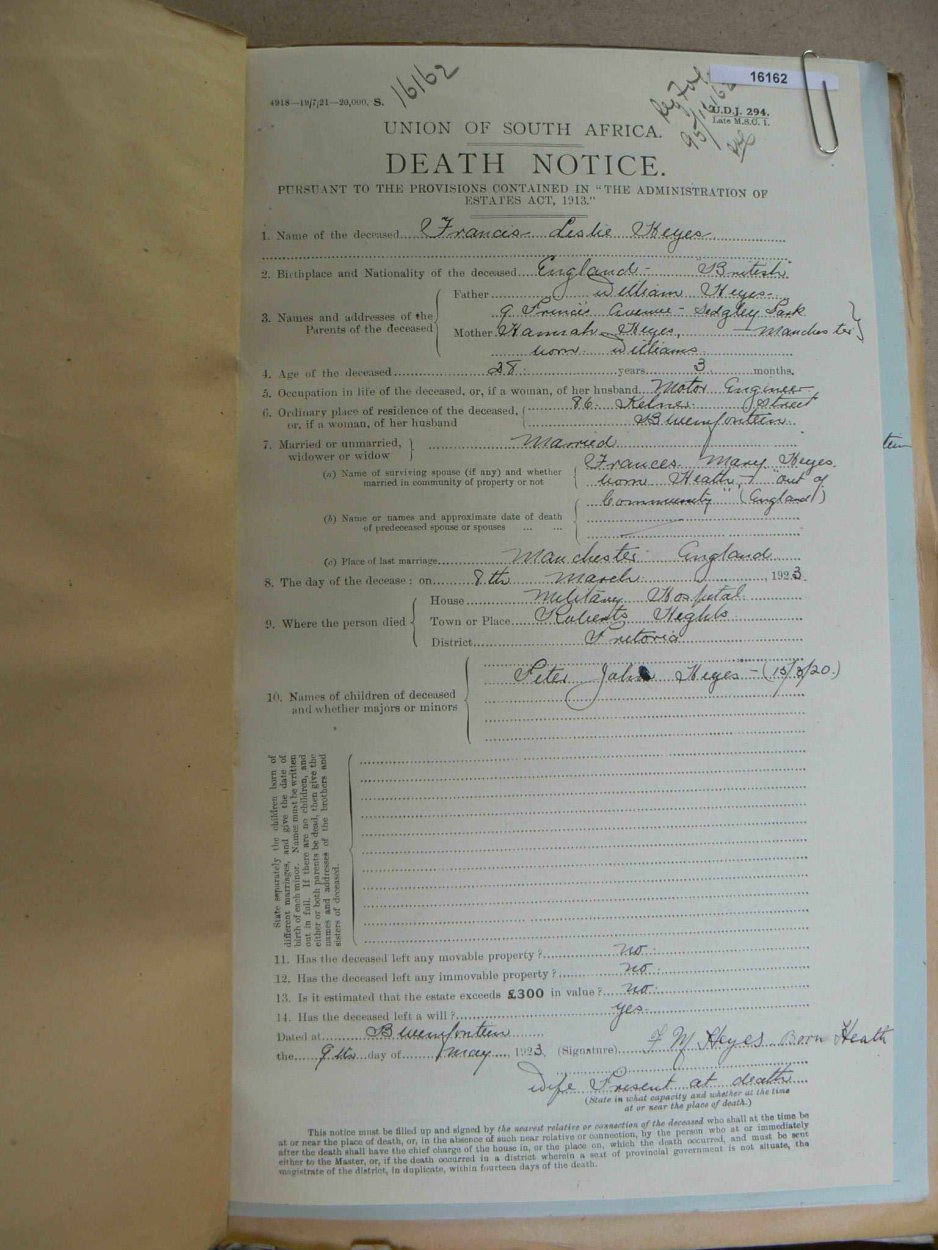 16162
16162
4918—19/7/21—20,000. S.
U.D.J. 294.
Late M.S.C. 1.
UNION OF SOUTH AFRICA.
DEATH NOTICE.
PURSUANT TO THE PROVISIONS CONTAINED IN "THE ADMINISTRATION OF
ESTATES ACT, 1913."
1. Name of the deceased Frances Leslie Heyes
2. Birthplace and Nationality of the deceased England - British
3. Names and addresses of the Parents of the deceased
Father William Heyes
9 Princes Avenue - Sedgley Park
Mother Hannah Heyes, Manchester
born Williams
4. Age of the deceased 28 years 3 months.
5. Occupation in life of the deceased, or, if a woman, of her husband Motor Engineer
6. Ordinary place of residence of the deceased, 86 Kelner Street
or, if a woman, of her husband Bloemfontein
7. Married or unmarried, widower or widow Married
tein
(a) Name of surviving spouse (if any) and whether married in community of property or not
Frances Mary Heyes
born Heath, + "out of
Community" (England)
(b) Name or names and approximate date of death
of predeceased spouse or spouses ... ...
(c) Place of last marriage Manchester England
8. The day of the decease: on 8th March, 1923.
9. Where the person died
House Military Hospital
Town or Place Roberts Heights
District Pretoria
10. Names of children of deceased and whether majors or minors
Peter John Heyes - (13/3/20.)
State separately the children born of
different marriages, and give the date of
birth of each minor. Names must be written
out in full. If there are no children, and
either or both parents be dead, then give the
names and addresses of the brothers and
sisters of deceased.
11. Has the deceased left any movable property? no.
12. Has the deceased left any immovable property? no.
13. Is it estimated that the estate exceeds £300 in value? no.
14. Has the deceased left a will? yes.
Dated at Bloemfontein
the 9th day of May 1923. (Signature) F M Heyes Born Heath
Wife Present at death
(State in what capacity and whether at the time
at or near the place of death.)
This notice must be filled up and signed by the nearest relative or connection of the deceased who shall at the time be
at or near the place of death, or, in the absence of such near relative or connection, by the person who at or immediately
after the death shall have the chief charge of the house in, or the place on, which the death occurred, and must be sent
either to the Master, or, if the death occurred in a district wherein a seat of provincial government is not situate, the
magistrate of the district, in duplicate, within fourteen days of the death.